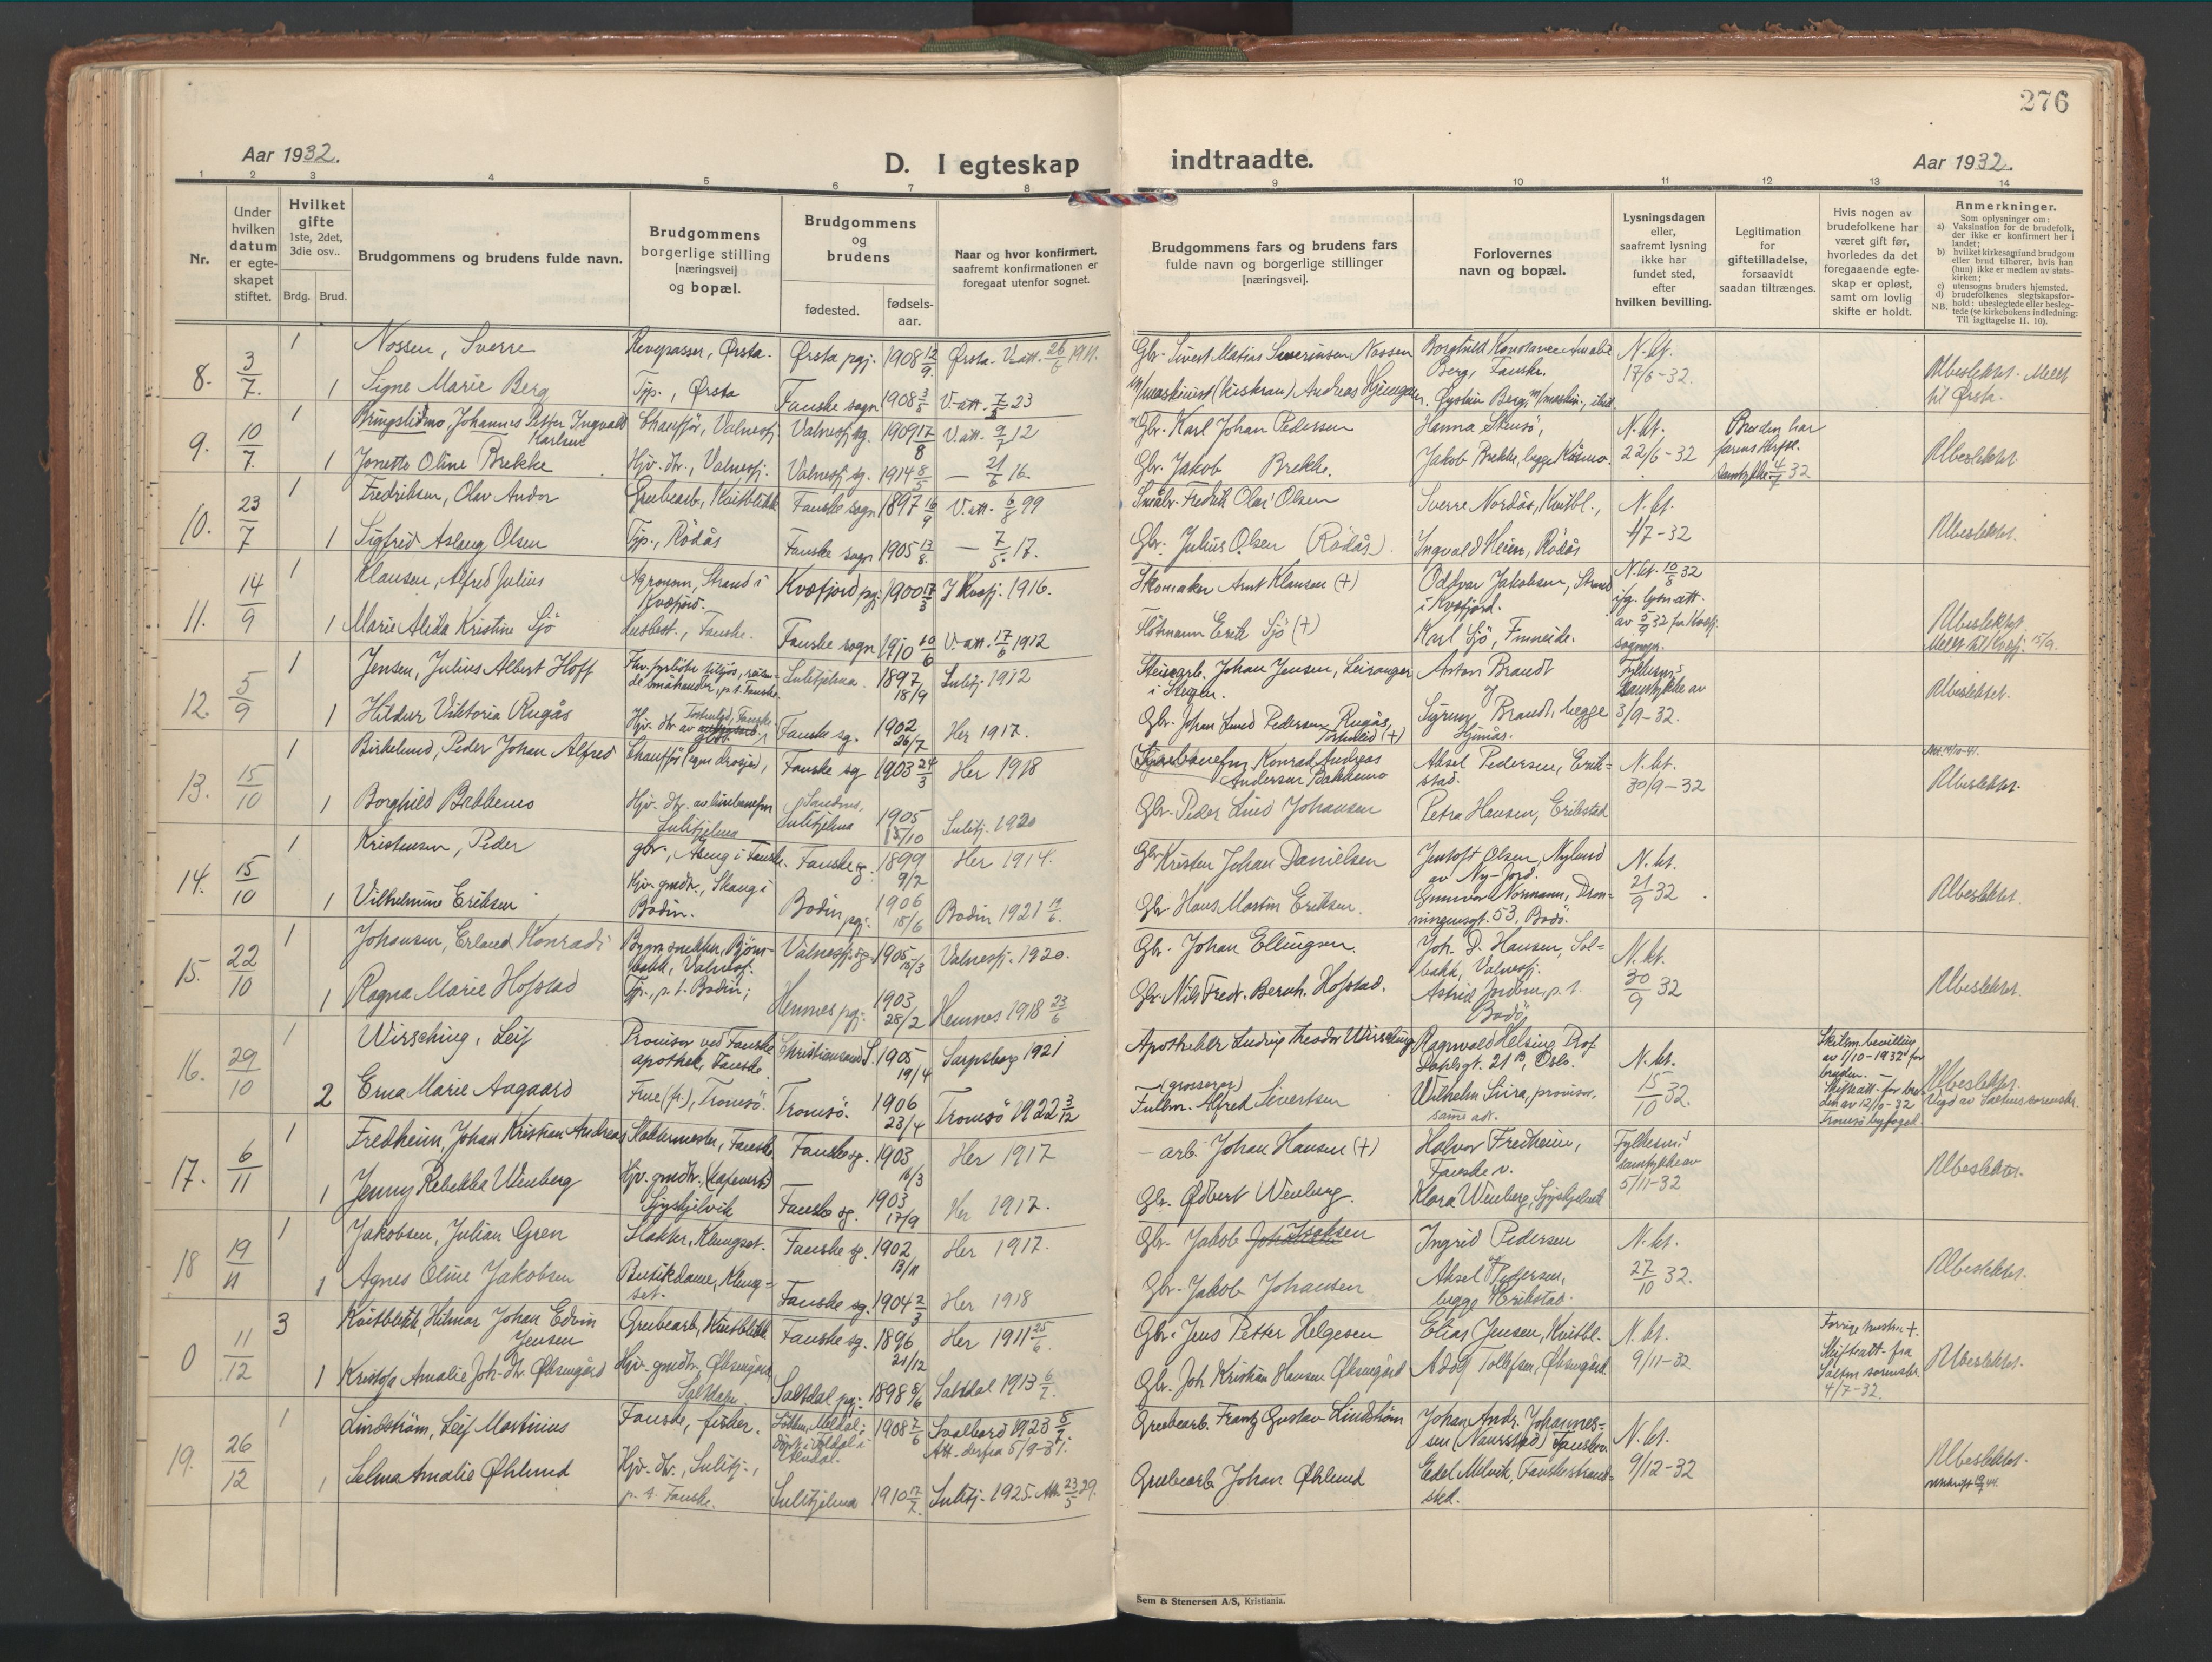 276
Aar 1932.
D. I egteskap indtraadte.
Aar 1932.
1 2 3 4 5 6 7 8 9 10 11 12 13 14
Nr.
Under hvilken datum er egteskapet stiftet.
Hvilket gifte 1ste, 2det, 3die osv..
Brdg. Brud.
Brudgommens og brudens fulde navn.
Brudgommens borgerlige stilling [næringsvei] og bopæl.
Brudgommens og brudens
fødested.
fødsels-aar.
Naar og hvor konfirmert, saafremt konfirmationen er foregaat utenfor sognet.
Brudgommens fars og brudens fars fulde navn og borgerlige stillinger [næringsvei].
Forlovernes navn og bopæl.
Lysningsdagen eller, saafremt lysning ikke har fundet sted, efter hvilken bevilling.
Legitimation for giftetilladelse, forsaavidt saadan tiltrænges.
Hvis nogen av brudefolkene har været gift før, hvorledes da det foregaaende egteskap er opløst, samt om lovlig skifte er holdt.
Anmerkninger.
Som oplysninger om:
a) Vaksination for de brudefolk, der ikke er konfirmert her i landet;
b) hvilket kirkesamfund brudgom eller brud tilhører, hvis han (hun) ikke er medlem av statskirken;
c) utensogns bruders hjemsted.
d) brudefolkenes slegtskapsforhold: ubeslegtede eller beslegtede (se kirkebokens indledning: Til iagttagelse II. 10).
NB.
8. 3/7. 1 Nossen, Sverre Revepasser, Ørsta. Ørsta pgj. 1908 12/9. Ørsta. V. att. 26/6 1911. Gbr. Sivert Matias Severinsen Nossen Borghild Konstance Amalie Berg, Fauske. N. kt. 17/6-32. Ubeslektet. Meldt til Ørsta.
1 Signe Marie Berg Tjp., Ørsta Fauske sogn 1908 3/5 V. att. 7/5 23 Andreas Øystein Berg,
9. 10/7. 1 Johannes Petter Ingvald Karlsen Chauffør, Valnesfj. Valnesfj. sg. 1909 17/8 V. att. 9/7 12 Gbr. Karl Johan Pedersen Hanna N. kt. 22/6-32 Bruden har farens samtykke 4/7 32 Ubeslektet.
1 Jonette Oline Brekke Hjv. dtr., Valnesfj. Valnesfj. sg. 1914 8/5 — 21/6 16. Gbr. Jakob Brekke. Jakob Brekke, begge Kosmo.
10. 23/7 1 Fredriksen, Olav Andor Grubearb., Kvitblikk Fauske sogn 1897 16/9 V. att. 6/8 99 Småbr. Fredrik Olai Olsen Sverre Nordås, Kvitbl., N. kt. 4/7-32 Ubeslektet.
1 Sigfrid Aslaug Olsen Tjp., Rödås Fauske sogn 1905 13/8. — 7/5 17. Gbr. Julius Olsen (Rödås). Ingvald Heien, Rödås
11. 14/9 1 Klausen, Alfred Julius Agronom, Strand i Kvæfjord. Kvæfjord pgj. 1900 17/3 I Kvæfj. 1916. Skomaker Arnt Klausen (+) Oddvar Jakobsen, Strand i Kvæfjord. N. kt. 10/5 32 ifg. lysn. att. av 5/9 32 fra Kvæfj. sogn. Ubeslektet.
1 Marie Alida Kristine Sjö Fauske. Fauske sogn 1910 10/6 V. att. 17/6 1912 Flötmann Erik Sjö (+) Karl Sjö, Finneide. Meldt til Kvæfj. 15/9.
12. 5/9 1 Jensen, Julius Albert Hoff p. t. Fauske Sulitjelma 1897 18/9 Sulitj. 1912 Johan Jensen, Leiranger i Steigen. Anton Brandt Fylkesm.s samtykke av 3/9-32. Ubeslektet.
1 Hildur Viktoria Rugås Hjv. dtr. av Fauske sg. 1902 26/7 Her 1917. Gbr. Johan Lund Pedersen Rugås, (+) Sigrun Brandt, begge
13. 15/10 1 Birkelund, Peder Johan Alfred Chauffør (egen drosje), Fauske sg 1903 24/3 Her 1918 Konrad Andreas Andersen Bakkemo Aksel Pedersen, Erikstad. N. kt. 30/9-32 Ubeslektet.
1 Borghild Bakkemo Hjv. dtr. av Sulitjelma Sandnes, Sulitjelma 1905 15/10 Sulitj. 1920 Gbr. Peder Lind Johansen Petra Hansen, Erikstad
14. 15/10 1 Kristensen, Peder gbr., i Fauske. Fauske sg. 1899 9/2 Her 1914. Gbr. Kristen Johan Danielsen Jentoft Olsen, Nylund av Ny-Jord. N. kt. 21/9 32 Ubeslektet.
1 Vilhelmine Eriksen Hjv. gmdtr., Skaug i Bodin. Bodin pgj. 1906 15/6 Bodin 1921 19/6. Gbr. Hans Martin Eriksen. Gunnvor Normann, Dronningensgt. 53, Bodö.
15. 22/10 1 Johansen, Erland Konradi Valnesfj. Valnesfj. sg. 1905 10/3 Valnesfj. 1920. Gbr. Johan Ellingsen. Joh. D. Hansen, Solbakk, Valnesfj. N. kt. 30/9 32 Ubeslektet.
1 Ragna Marie Hofstad Tjp., p. t. Bodin; Hemnes pgj. 1903 28/2 Hemnes 1918 23/6 Gbr. Nils Fredr. Bernh. Hofstad. Astrid Jordbru, p. t. Bodö.
16. 29/10 1 Wirsching, Leif Provisor ved Fauske apothek, Fauske. Christiansand S. 1905 19/4 Sarpsborg 1921 Apotheker Ludvig Theodor Wirsching Ragnvald Helsing, Prof. Dahlsgt. 21 B, Oslo. N. kt. 15/10 32. Skilsm. bevilling av 1/10-1932 for bruden. — Skifteatt. for bruden av 12/10-32 Tromsö byfoged. Ubeslektet. Vigd av Saltens sorenskr.
2 Erna Marie Aagaard Frue (fr.), Tromsö. Tromsö. 1906 23/4 Tromsö 1922 3/12 (grosserer) Fullm. Alfred Sivertsen Wilhelm Siira, provisor, samme adr.
17. 6/11 1 Fredheim, Johan Kristian Andreas Slaktermester, Fauske. Fauske sg. 1903 16/3 Her 1917 — arb. Johan Hansen (+) Halvor Fredheim, Fauske v. Fylkesm.s samtykke av 5/11-32 Ubeslektet.
1 Jenny Rebekka Wenberg Hjv. gmdtr. Fauske sg. 1903 17/9 Her 1917. Gbr. Ødbert Wenberg. Klara Wenberg,
18 19/11 1 Jakobsen, Julian Gren Slakter, Klungset. Fauske sg. 1902 13/11 Her 1917. Gbr. Jakob Isaksen Ingrid Pedersen N. kt. 27/10 32. Ubeslektet.
1 Agnes Oline Jakobsen Butikdame, Klungset. Fauske sg. 1904 2/3 Her 1918 Gbr. Jakob Johansen Aksel Pedersen, begge Erikstad.
0 11/12 3 Kvitblikk, Hilmar Johan Edvin Jensen Grubearb., Kvitblikk Fauske sg. 1896 21/12 Her 1911 25/6. Gbr. Jens Petter Helgesen Elias Jensen, Kvitbl. N. kt. 9/11-32 Forrige hustru +. Skifteatt. fra Salten sorenskr. 4/7-32. Ubeslektet.
1 Kristofa Amalie Joh. dtr. Øksengård Hjv. gmdtr. Øksengård, Saltdalen Saltdal pgj. 1898 8/6 Saltdal 1913 6/7. Gbr. Joh. Kristian Hansen Øksengård Adolf Tollefsen, Øksengård.
19. 26/12 1 Lindström, Leif Martinius Fauske, fisker. Lökken, Meldal; 1908 7/6 Svalbard 1923 8/7. Att. derfra 5/9-31. Grubearb. Frantz Gustav Lindström Johan Andr. Johannessen (Naurstad) Fauske. N. kt. 9/12-32 Ubeslektet.
1 Selma Amalie Øhlund Hjv. dtr., Sulitj., p. t. Fauske. Sulitjelma 1910 17/7. Sulitj. 1925. Att. 23/5 29. Grubearb. Johan Øhlund Edel Milvik, Fauskestrand sted.
Sem & Stenersen A/S, Kristiania.